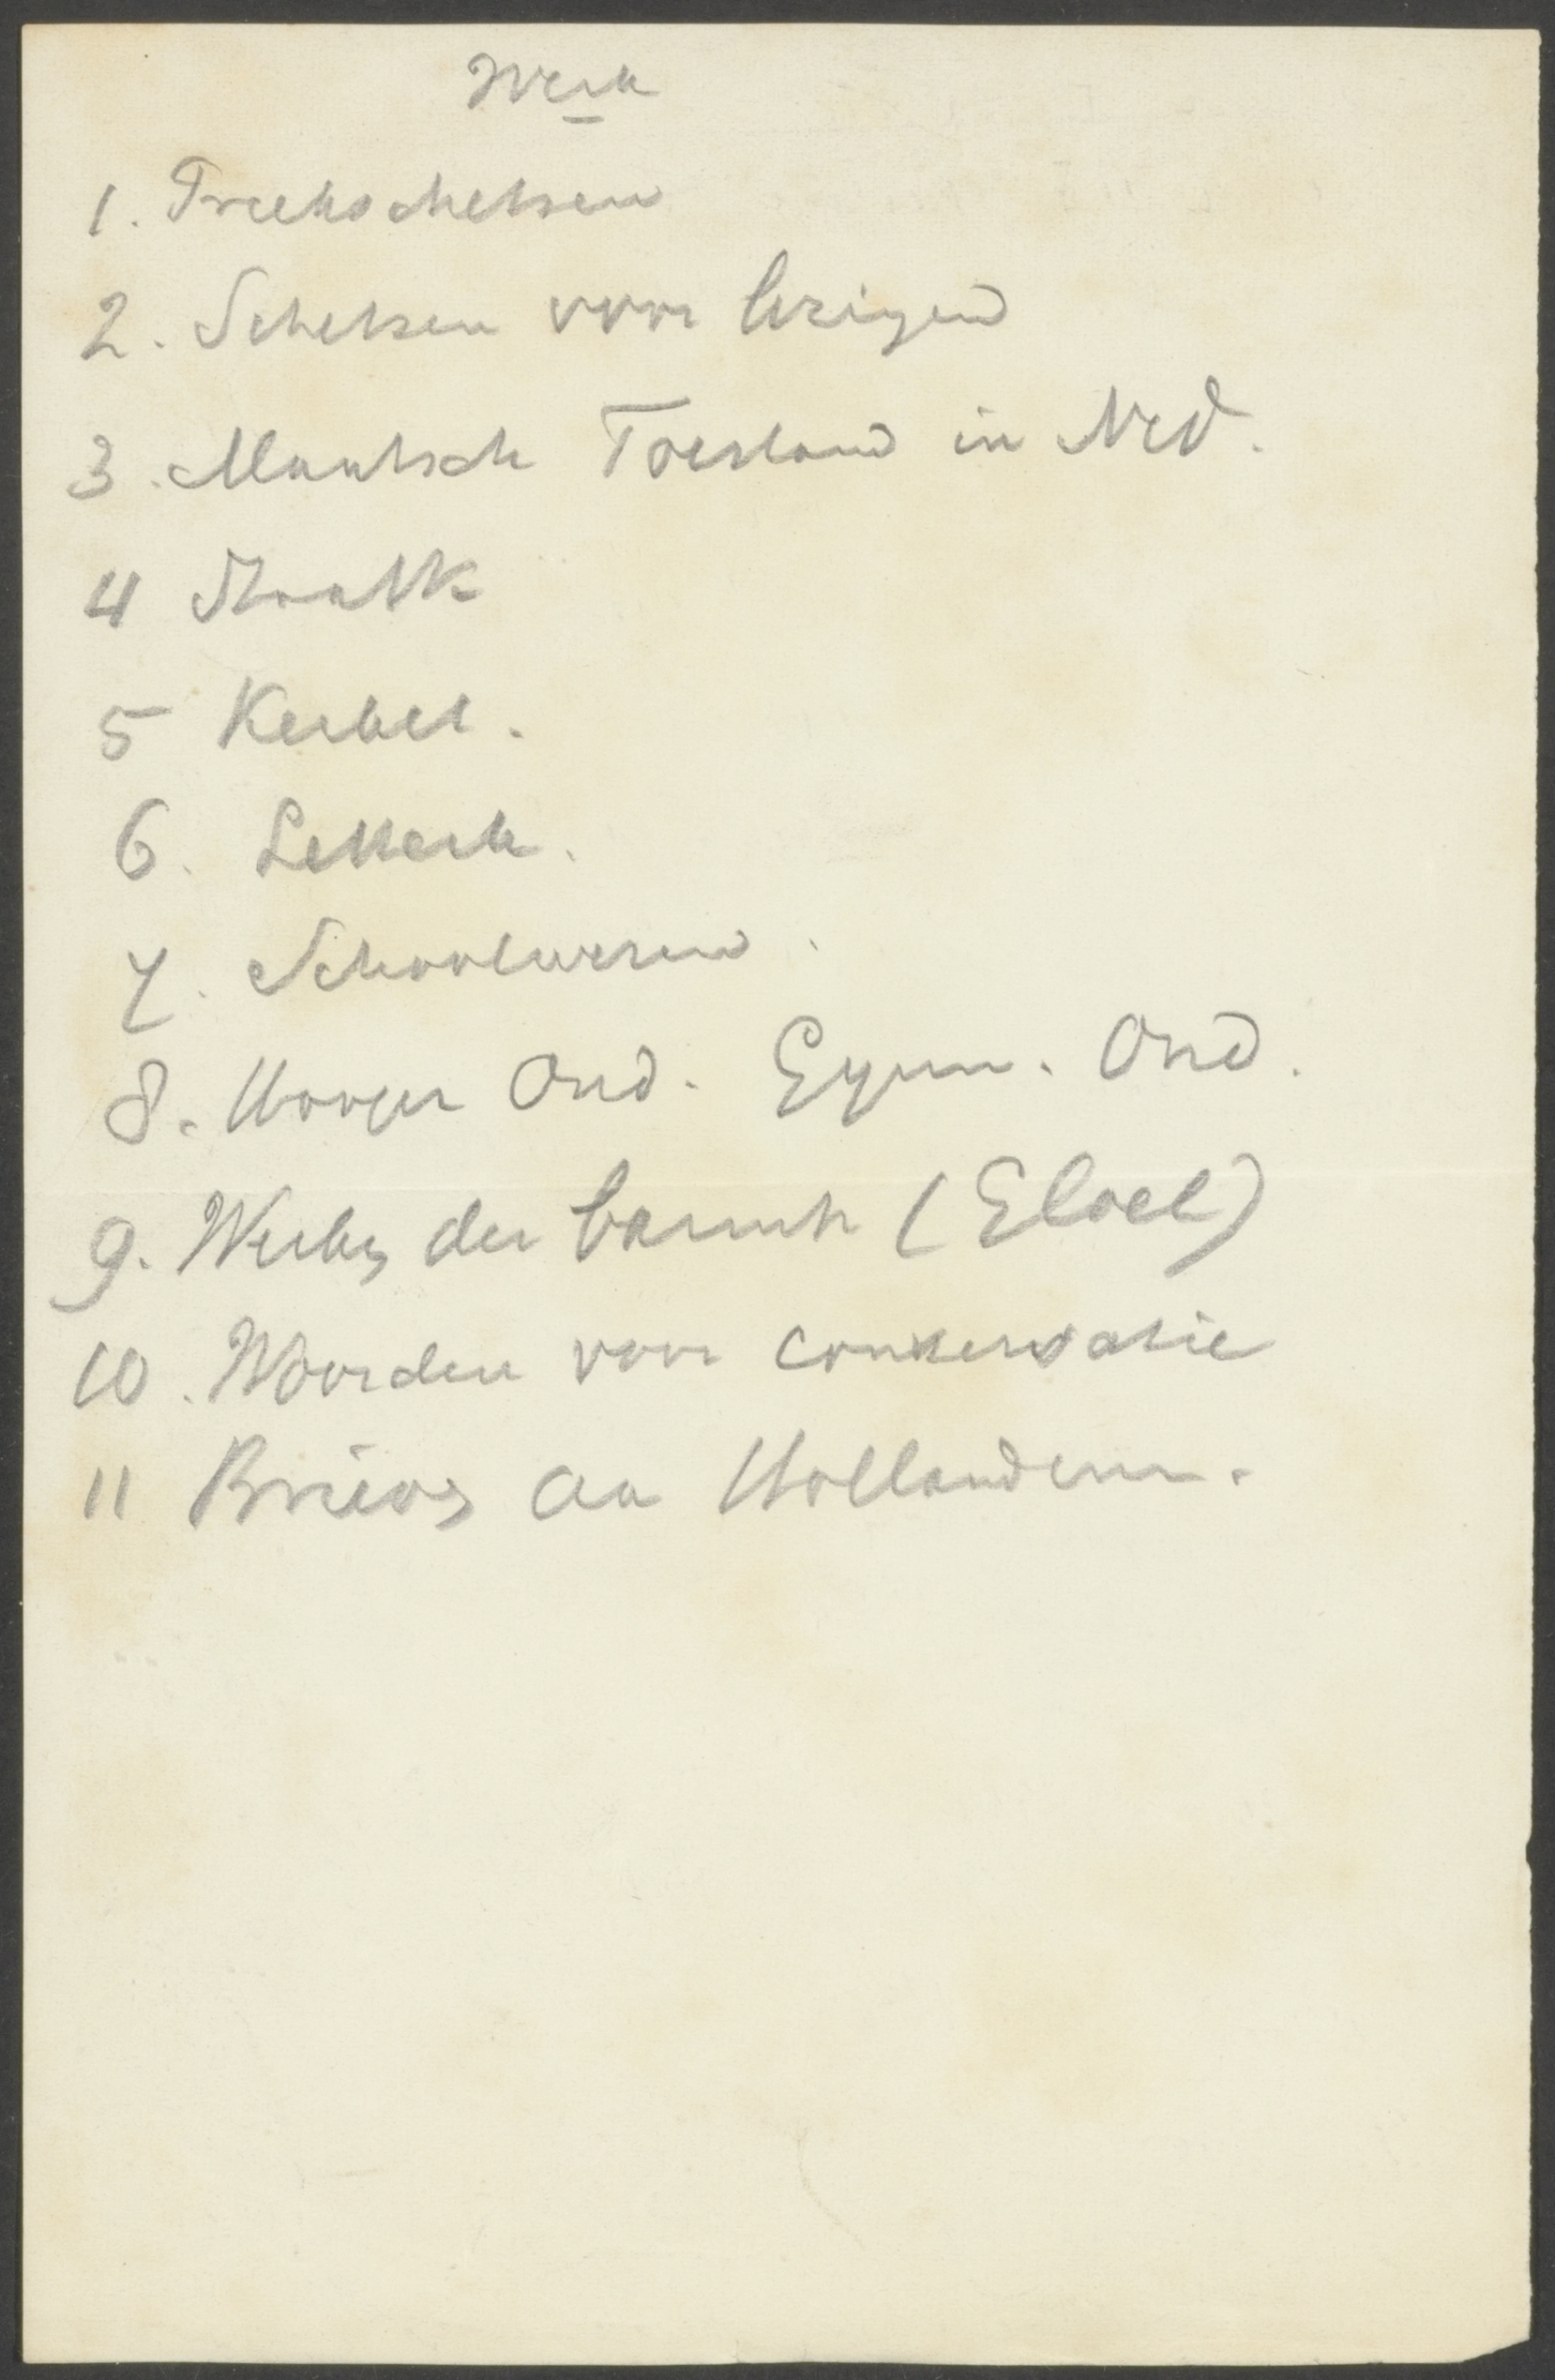 Werk
1. Preekschetsen
2. Schetsen voor lezingen
3. Maatsch Toestand in Ned.
4 Staatk
5 Kerkel.
6. Letterk.
7. Schoolwezen.
8. Hooger Ond. Gymn. Ond.
9. Werkz der (Eloel)
10. Woorden voor conversatie
11 Brieven aa Hollanderen.